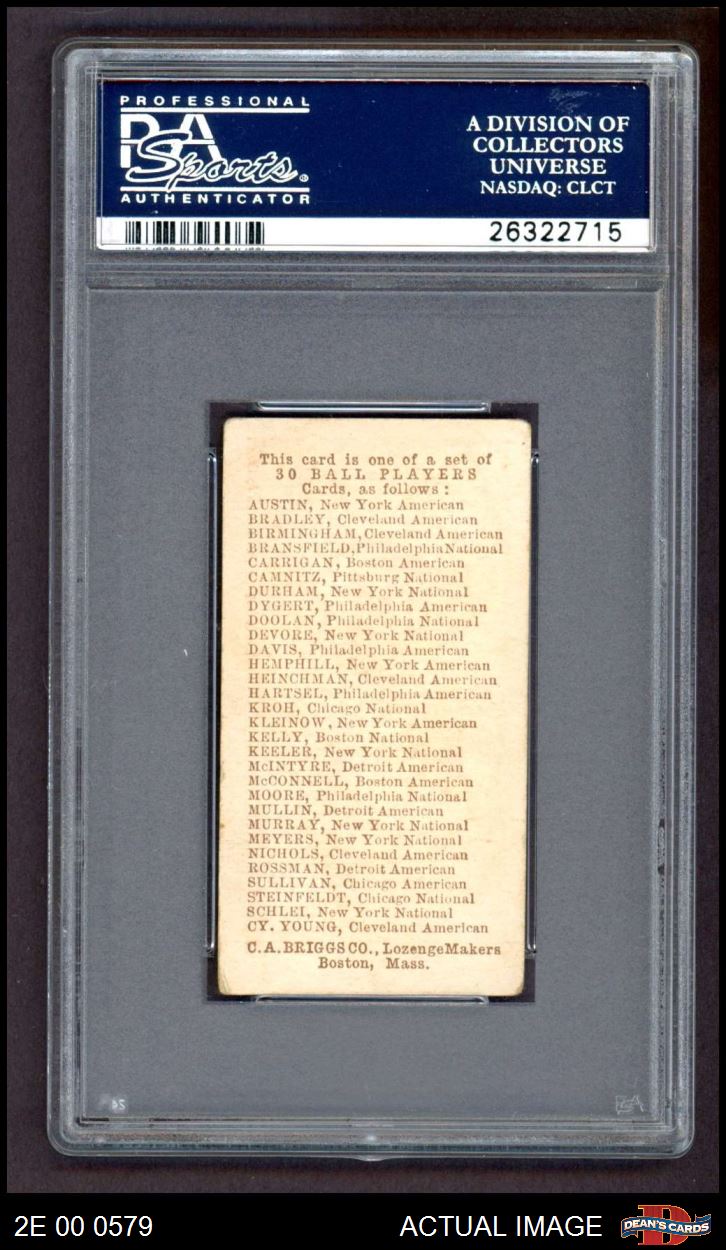 PROFESSIONAL
PSA
Sports®
AUTHENTICATOR
A DIVISION OF
COLLECTORS
UNIVERSE
NASDAQ: CLCT
26322715
This card is one of a set of
30 BALL PLAYERS
Cards, as follows :
AUSTIN, New York American
BRADLEY, Cleveland American
BIRMINGHAM, Cleveland American
BRANSFIELD, Philadelphia National
CARRIGAN, Boston American
CAMNITZ, Pittsburg National
DURHAM, New York National
DYGERT, Philadelphia American
DOOLAN, Philadelphia National
DEVORE, New York National
DAVIS, Philadelphia American
HEMPHILL, New York American
HEINCHMAN, Cleveland American
HARTSEL, Philadelphia American
KROH, Chicago National
KLEINOW, New York American
KELLY, Boston National
KEELER, New York National
McINTYRE, Detroit American
McCONNELL, Boston American
MOORE, Philadelphia National
MULLIN, Detroit American
MURRAY, New York National
MEYERS, New York National
NICHOLS, Cleveland American
ROSSMAN, Detroit American
SULLIVAN, Chicago American
STEINFELDT, Chicago National
SCHLEI, New York National
CY. YOUNG, Cleveland American
C. A. BRIGGS CO., Lozenge Makers
Boston, Mass.
PSA
2E 00 0579
ACTUAL IMAGE
DEAN'S CARDS